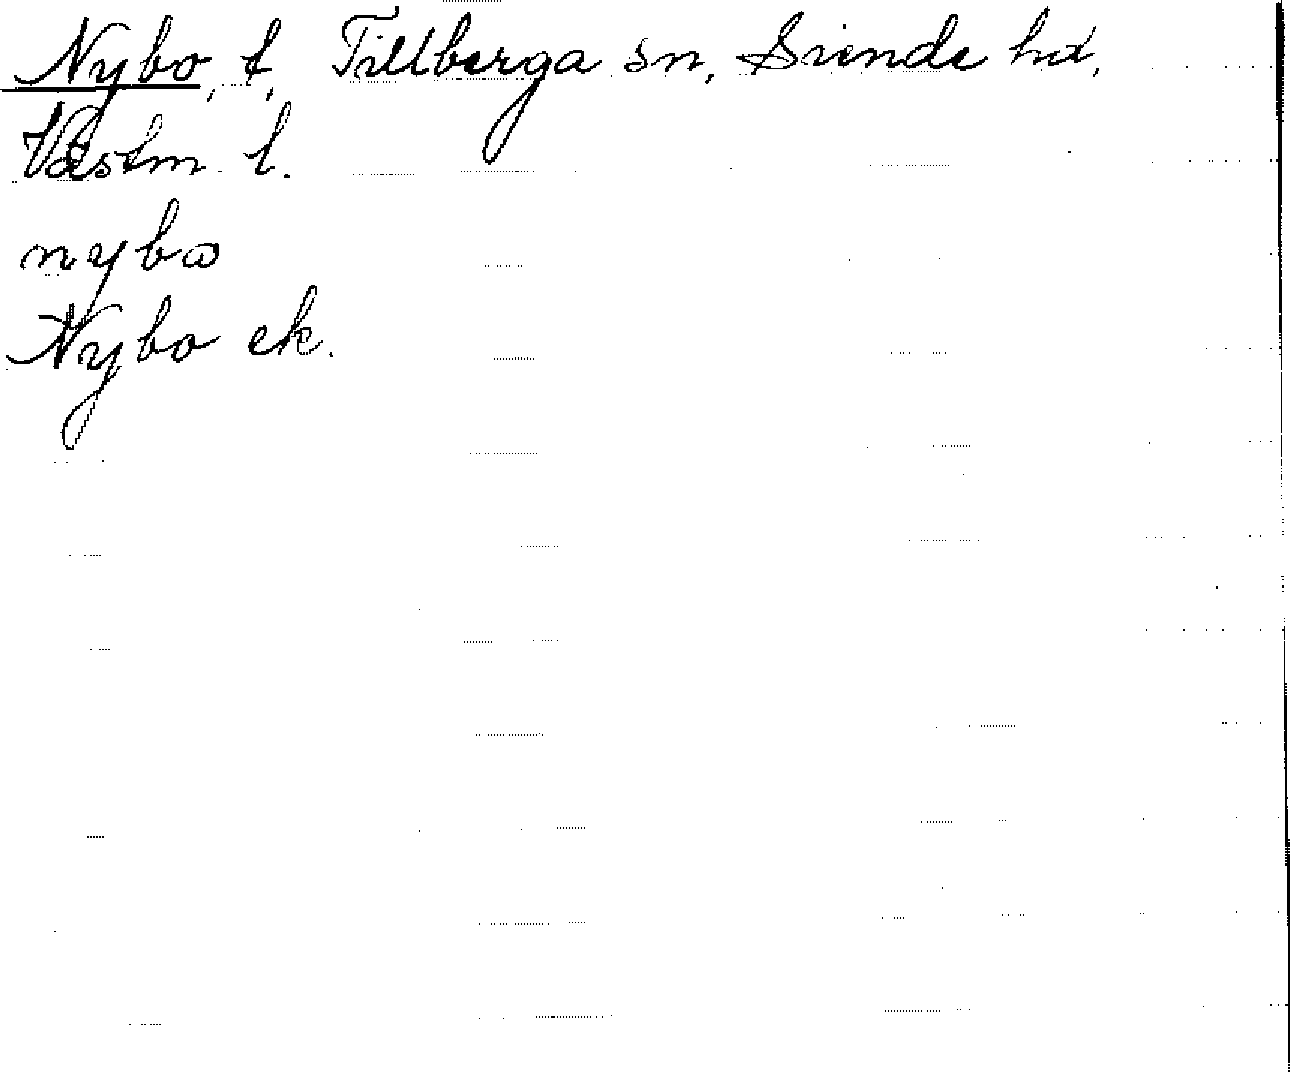 Nybo, t, Tillberga sn, Siende hd,
Västm. l.
nybo
Nybo ek.